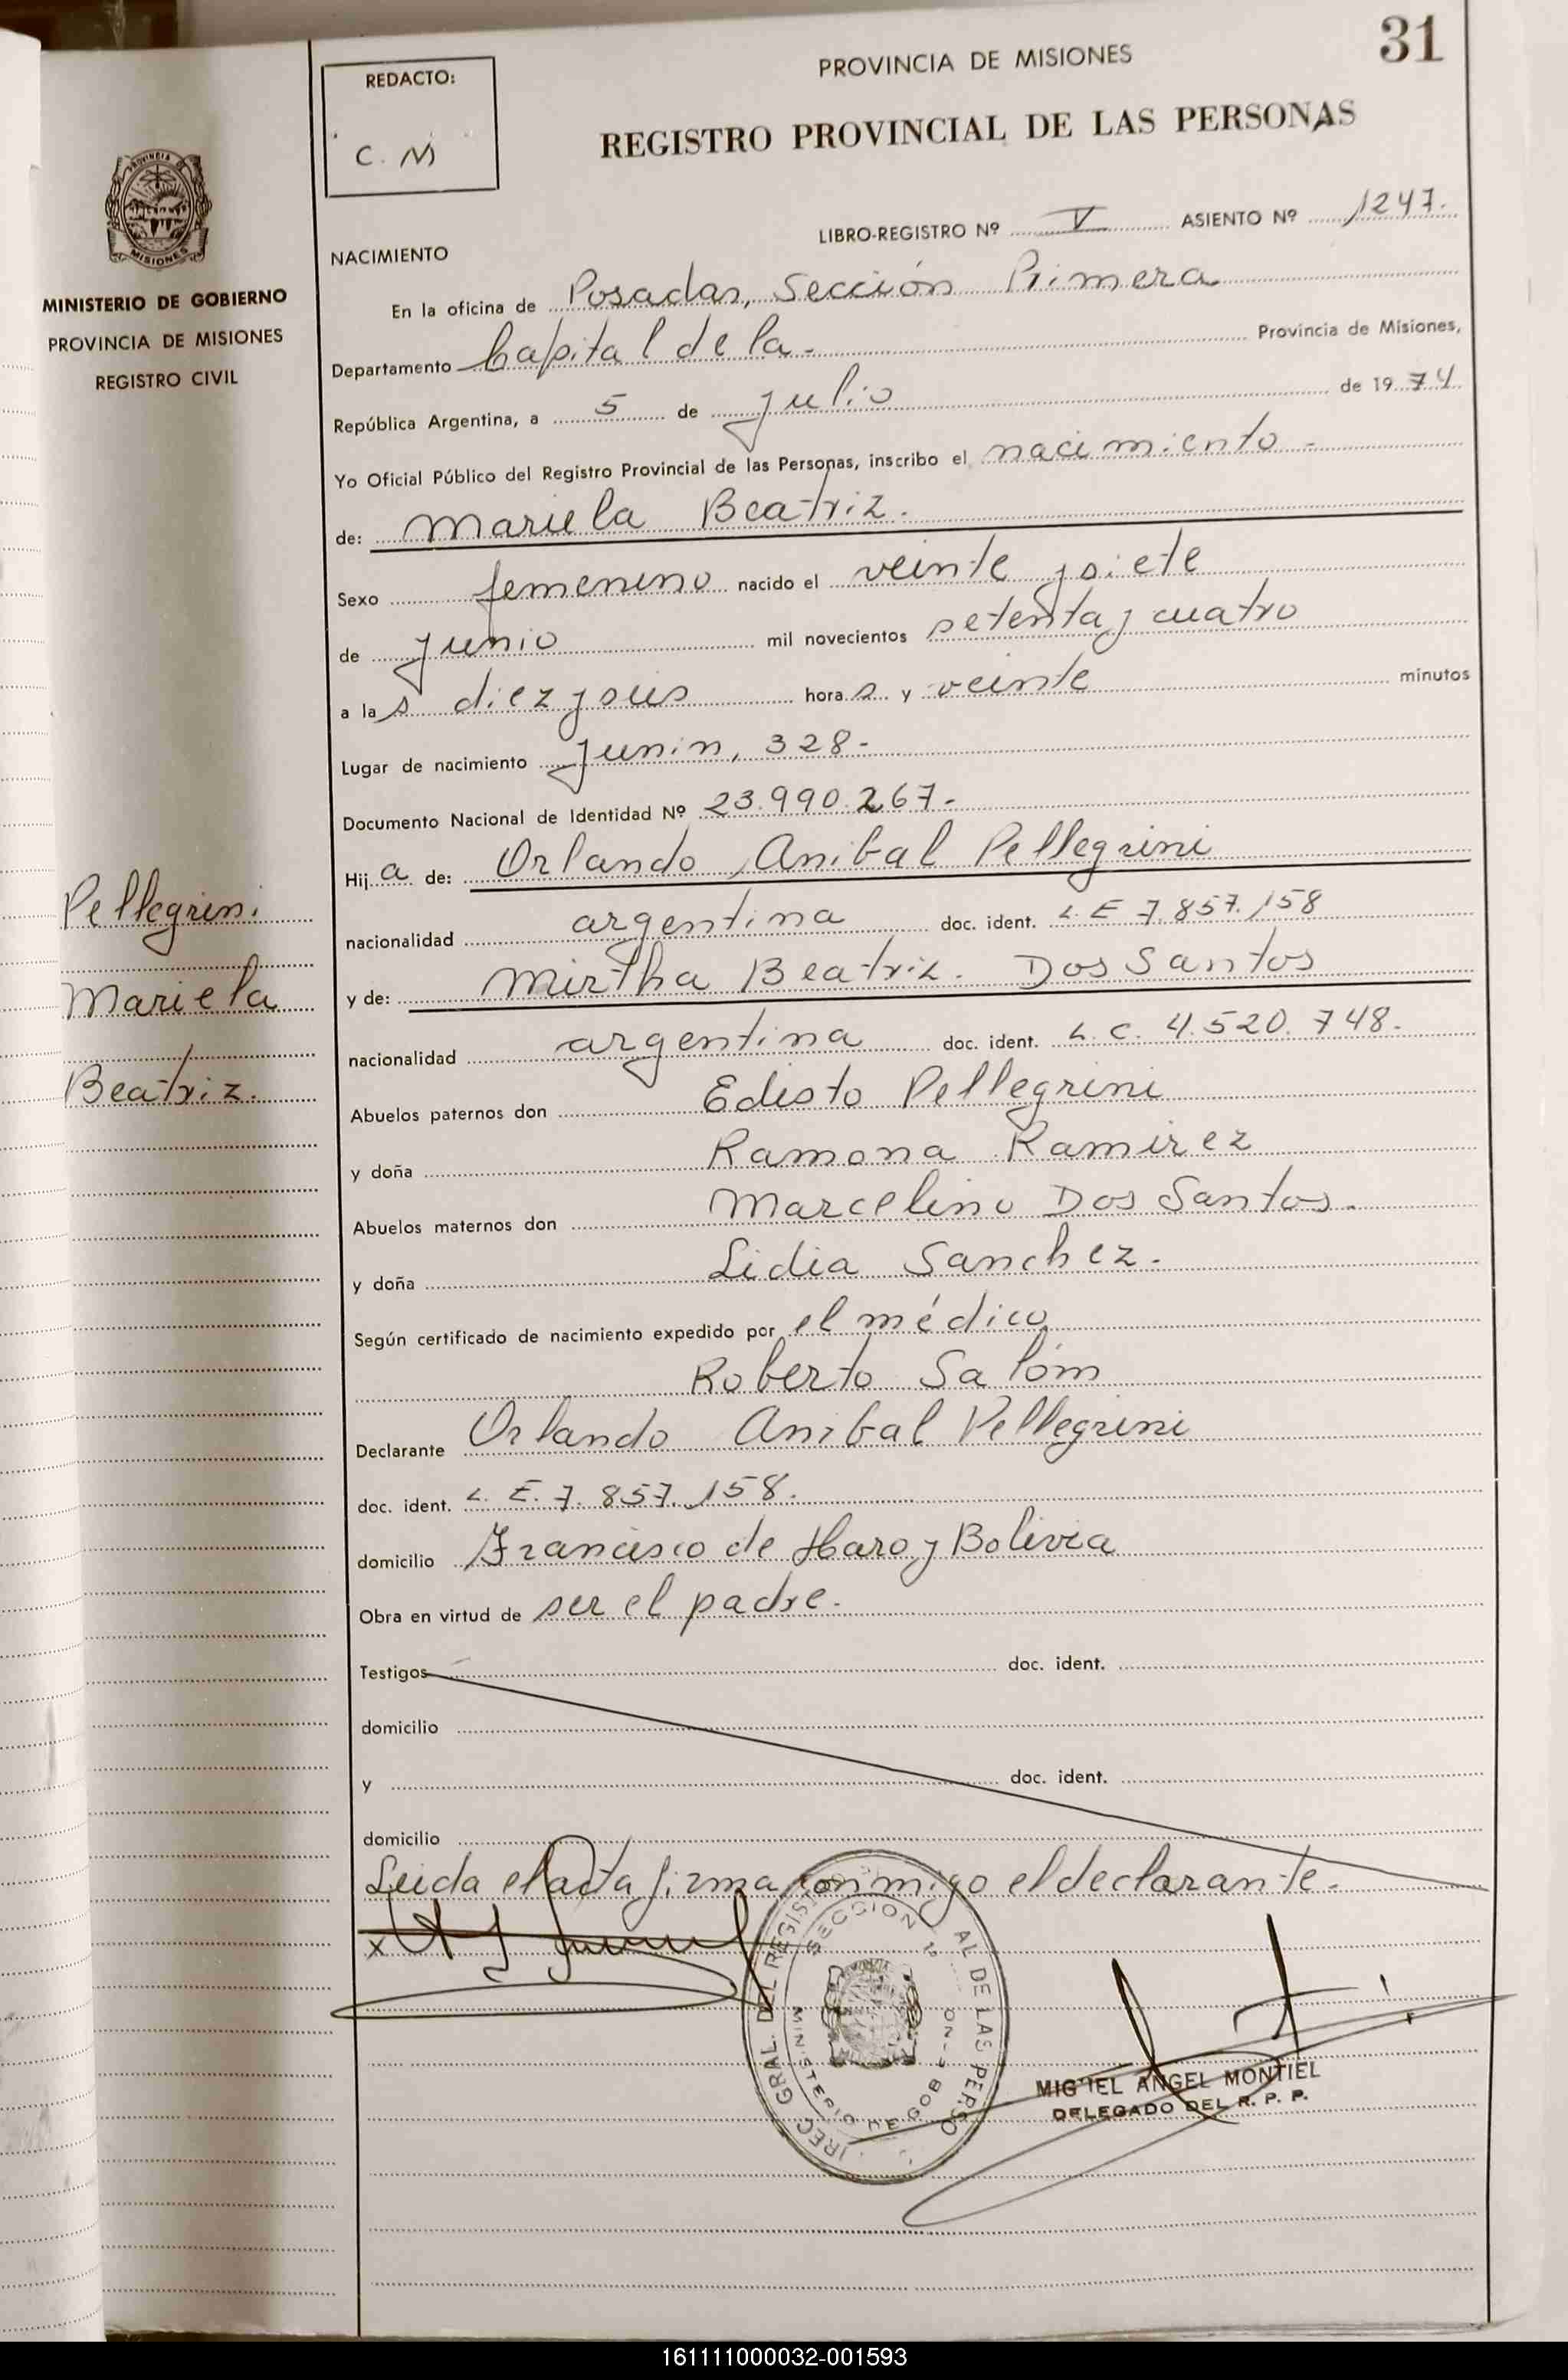 31
PROVINCIA DE MISIONES
REGISTRO PROVINCIAL DE LAS PERSONAS
REDACTO:
C. M
LIBRO-REGISTRO Nº V ASIENTO Nº 1247.
NACIMIENTO
MINISTERIO DE GOBIERNO
PROVINCIA DE MISIONES
REGISTRO CIVIL
En la oficina de Posadas, Sección Primera
Departamento Capital de la - Provincia de Misiones,
República Argentina, a 5 de Julio de 1974
Yo Oficial Público del Registro Provincial de las Personas, inscribo el nacimiento -
de: Mariela Beatriz.
Sexo femenino nacido el veinte y siete
de Junio mil novecientos setenta y cuatro
a las diez y seis horas y veinte minutos
Lugar de nacimiento Junin, 328-
Documento Nacional de Identidad Nº 23.990.267-
Hija de: Orlando Anibal Pellegrini
nacionalidad argentina doc. ident. L. E 7.857.158
y de: Mirtha Beatriz. Dos Santos
nacionalidad argentina doc. ident. L. C. 4.520.748-
Abuelos paternos don Edisto Pellegrini
y doña Ramona Ramirez
Abuelos maternos don Marcelino Dos Santos.
y doña Lidia Sanchez.
Según certificado de nacimiento expedido por el médico
Roberto Salóm
Declarante Orlando Anibal Pellegrini
doc. ident. L. E. 7.857.158.
domicilio Francisco de Haro y Bolivia
Obra en virtud de ser el padre.
Testigos doc. ident.
domicilio
y doc. ident.
domicilio
Leida el acta firma conmigo el declarante.
Pellegrini
Mariela
Beatriz.
x
SECCION 1ª
MINISTERIO DE GOB
AL DE LAS PERSO
GRAL. DEL REGIS
MIGUEL ANGEL MONTIEL
DELEGADO DEL R. P. P.
PROVINCIA DE
MISIONES
161111000032-001593